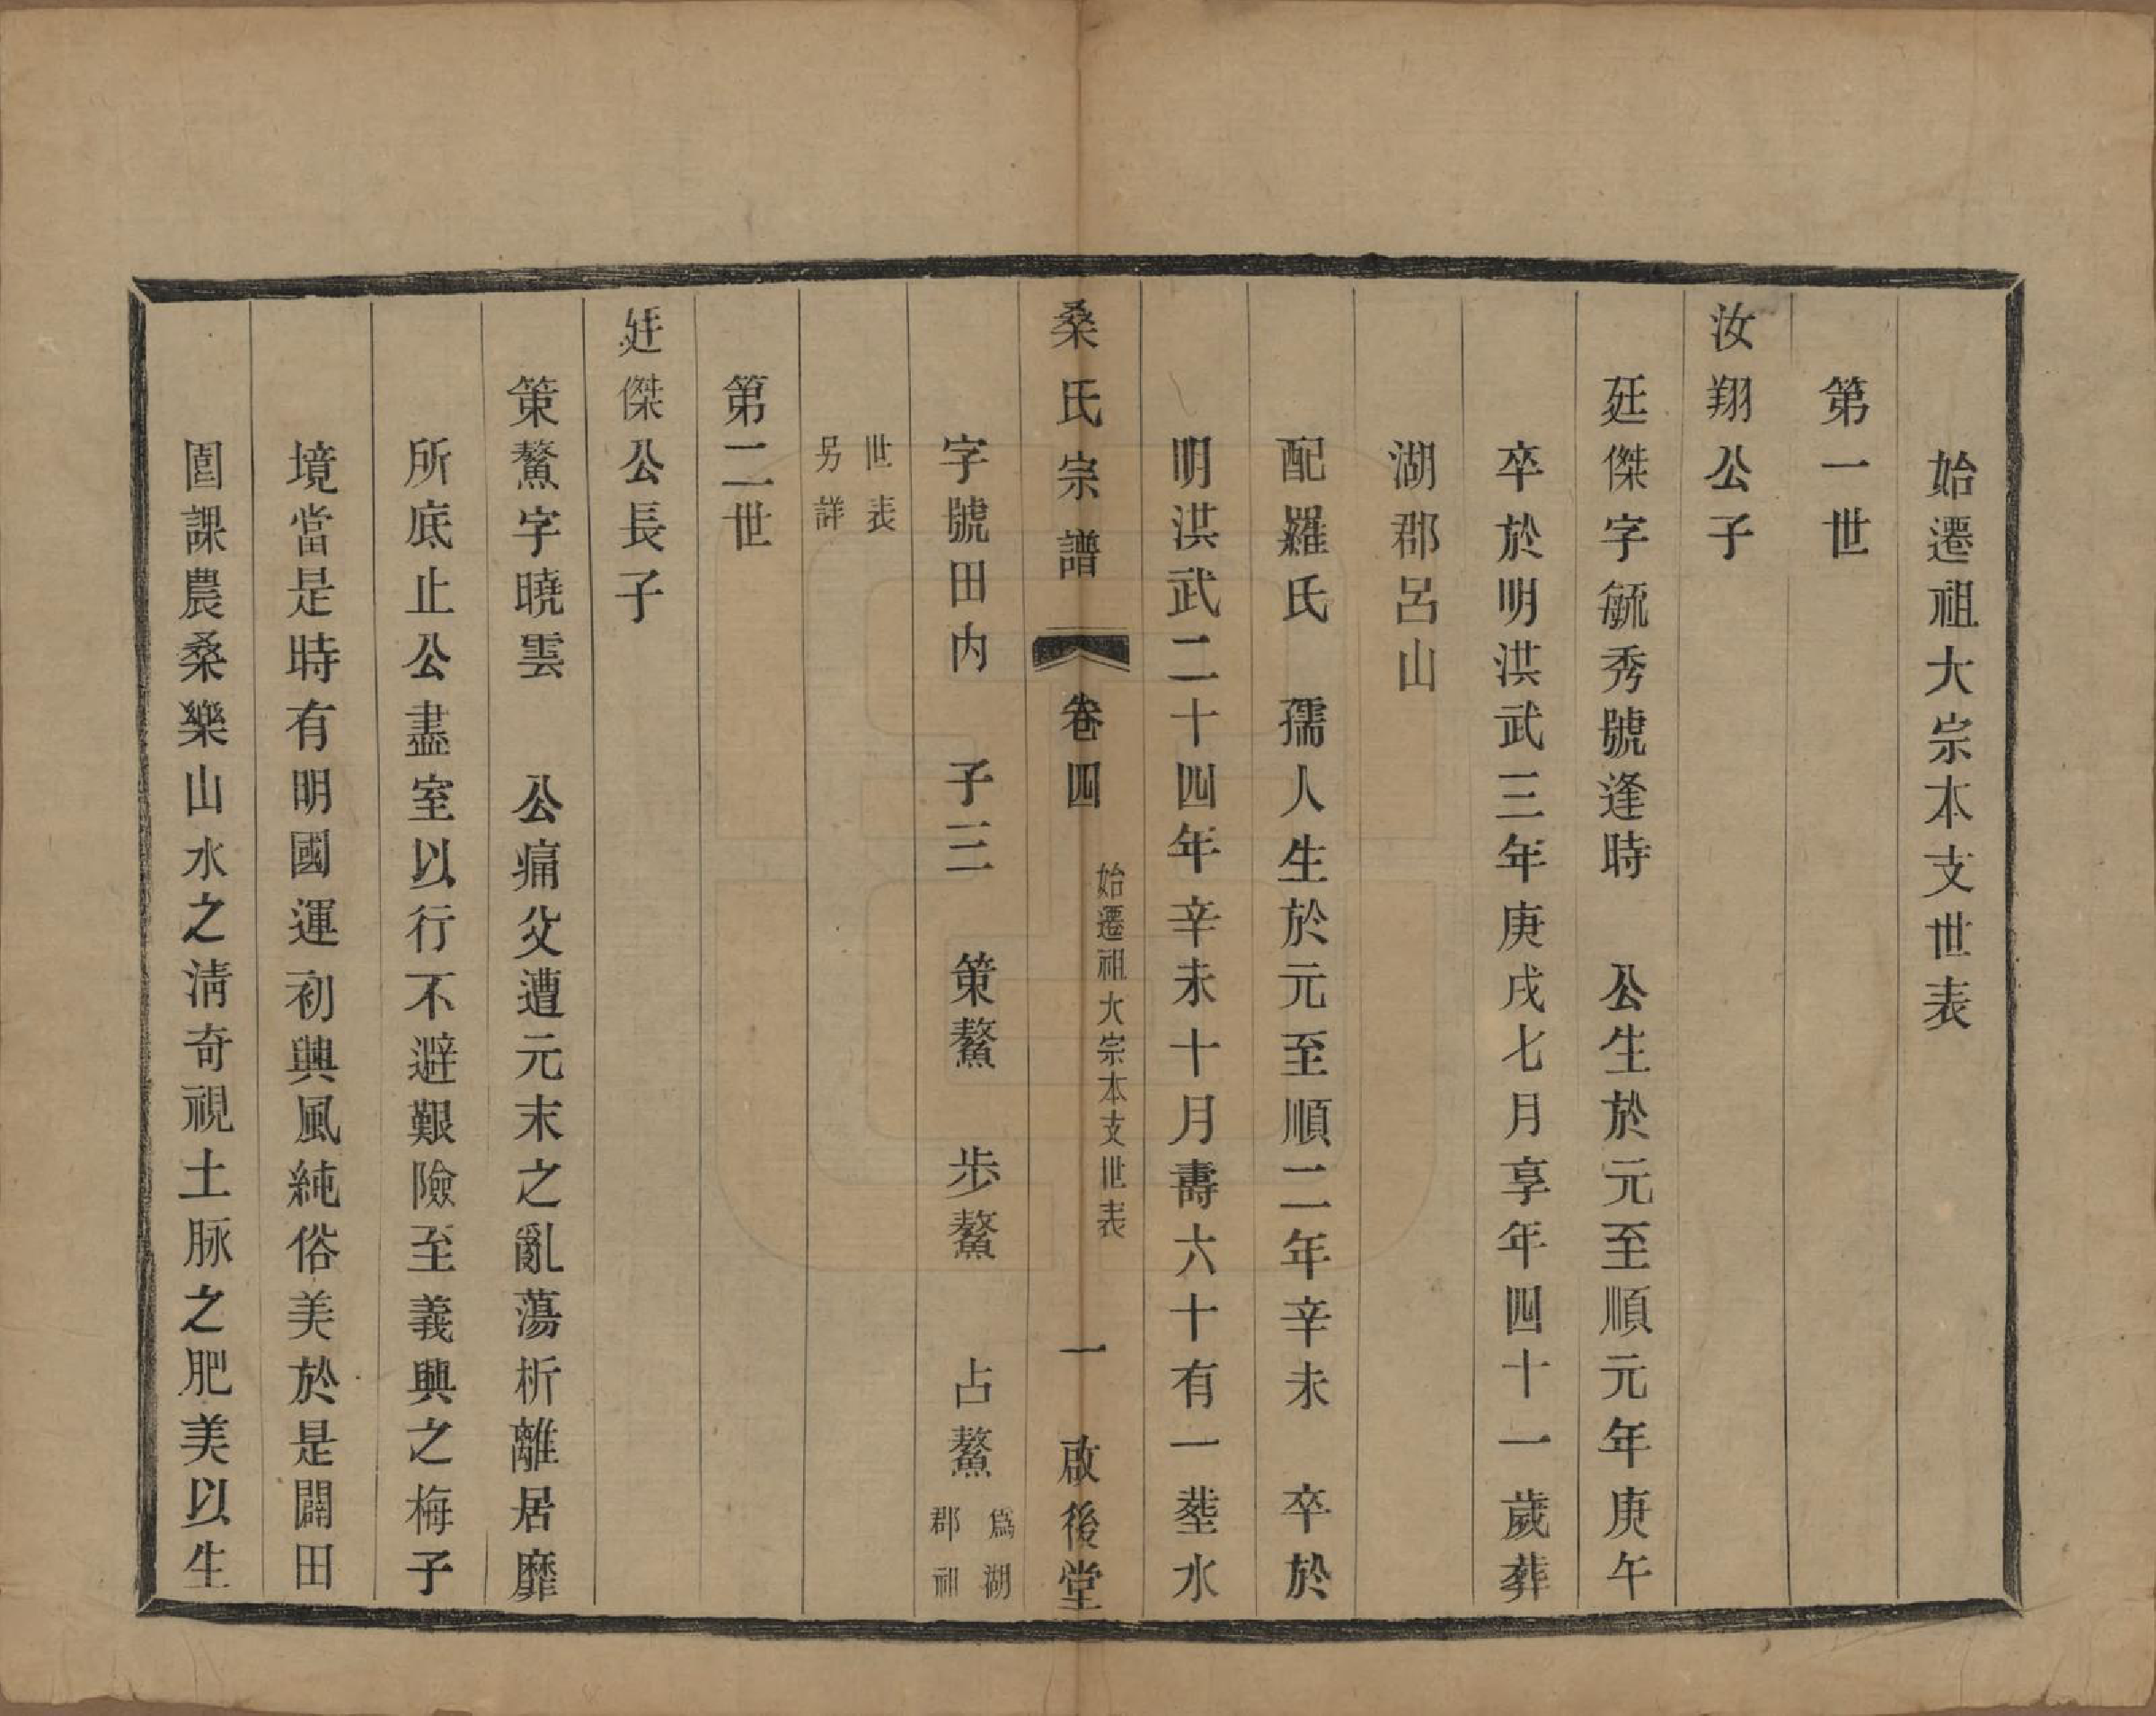 始遷祖大宗本支世表
第一世
汝翔公子
廷傑字毓秀號逢時　公生於元至順元年庚午
卒於明洪武三年庚戌七月享年四十一歲葬
湖郡呂山
配羅氏　孺人生於元至順二年辛未　卒於
明洪武二十四年辛未十月壽六十有一塟水
字號田内　子三　策鰲　步鰲　占鰲 爲湖
郡祖
桑氏宗譜　卷四　始遷祖大宗本支世表　一　啟後堂
世表
另詳
第二世
廷傑公長子
策鰲字曉雲　公痛父遭元末之亂蕩析離居靡
所底止公盡室以行不避艱險至義興之梅子
境當是時有明國運初興風純俗美於是闢田
園課農桑樂山水之清奇視土脉之肥美以生